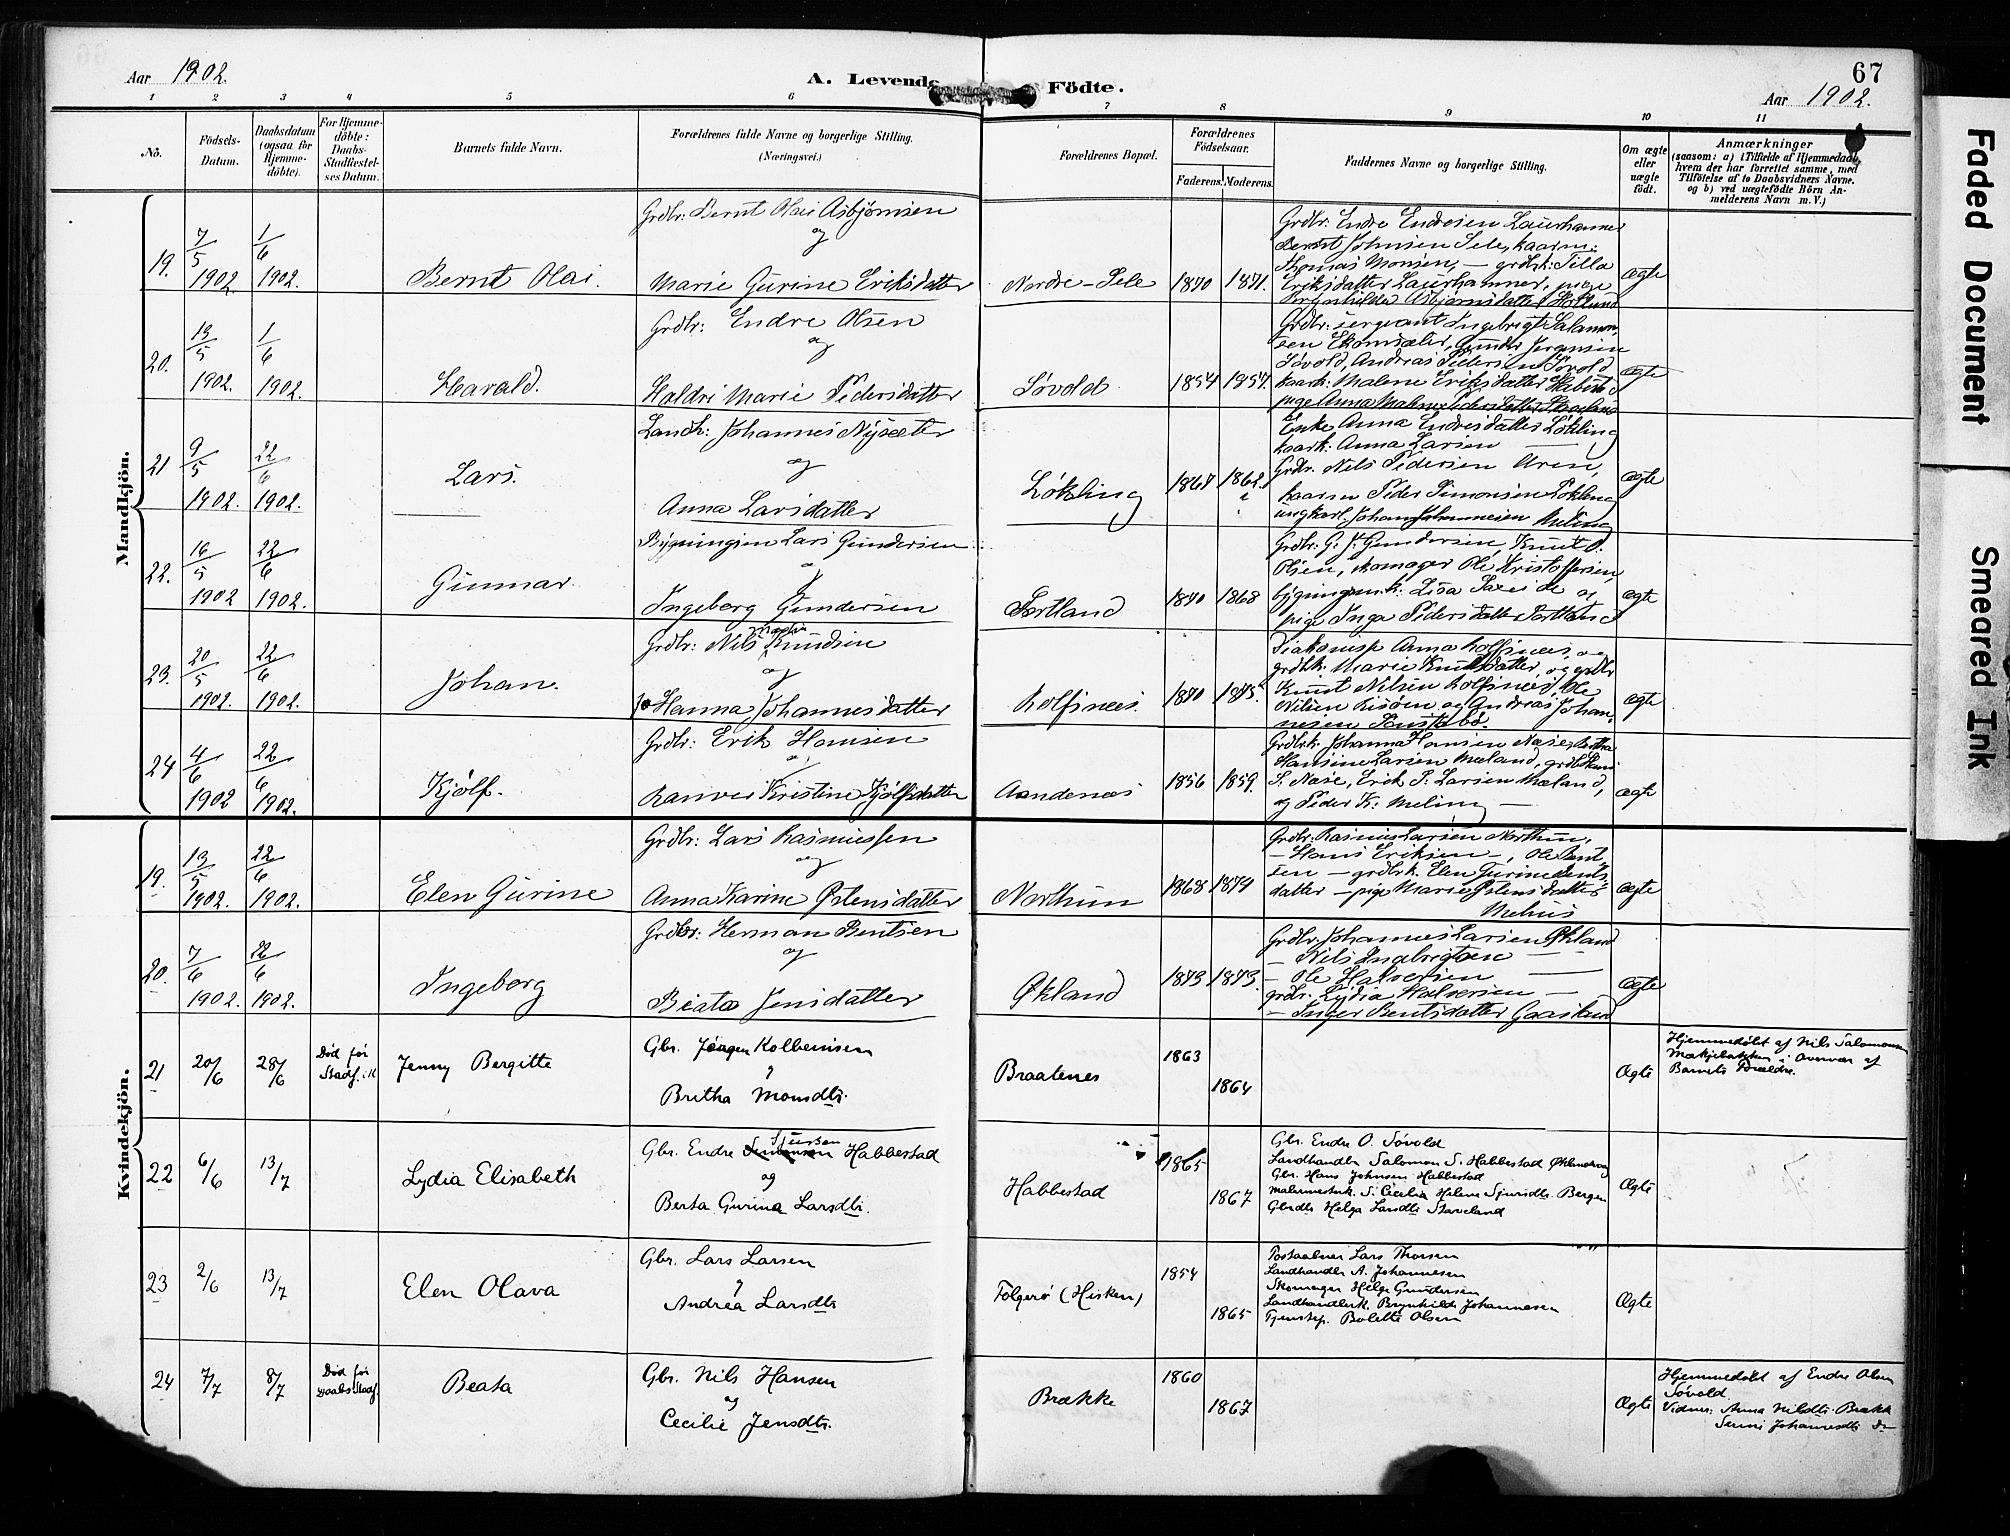 67
Aar 1902.
A. Levende Födte.
Aar 1902.
1 2 3 4 5 6 7 8 9 10 11
No.
Födsels-Datum.
Daabsdatum (ogsaa för Hjemme-döbte).
For Hjemme-döbte: Daabs-Stadfæstel-ses Datum.
Barnets fulde Navn.
Forældrenes fulde Navne og borgerlige Stilling.
(Næringsvei.)
Forældrenes Bopæl.
Forældrenes Födselsaar.
Faderens. Moderens.
Faddernes Navne og borgerlige Stilling.
Om ægte eller uægte födt.
Anmærkninger
(saasom: a) i Tilfælde af Hjemmedaab,
hvem der har forrettet samme, med
Tilföielse af to Daabsvidners Navne,
og b) ved uægtefödte Börn An-
melderens Navn m. V.)
Mandkjön.
19. 7/5 1902 1/6 1902. Bernt Olai.
Grdbr: Bernt Olai Asbjørnsen
og
Marie Gurine Eriksdatter
Nordre-Sele 1870 1871.
Grdbr: Endre Endresen Laurhammer
Bernt Johnsen Sele, kaarm:
Thomas Monsen, — grdbrk: Tilla
Eriksdatter Laurhammer, pige
Asbjørnsdatter
ægte
20. 13/5 1902. 1/6 1902. Harald.
Grdbr: Endre Olsen
og
Haldri Marie Pedersdatter
Søvold 1854 1857.
Grdbr: sergeant Ingebrigt Salamon-
sen
Søvold, Andreas Pedersen Søvold
kaark: Malene Eriksdatter
pige Anna Malene Pedersdatter
ægte
21 9/5 1902. 22/6 1902. Lars.
Landh: Johannes Nysæter
og
Anna Larsdatter
Løkling 1867 1862.
Enke Anna Endresdatter Løkling
kaark: Anna Larsen —
Grdbr: Nils Pedersen
kaarm Peder Simonsen Løkling
ungkarl Johan Johannesen Meling
ægte
22. 16/5 1902 22/6 1902. Gunnar
Bygningsm Lars Gundersen
og
Ingeborg Gundersen
Fortland 1870 1868
Grdbr: G. J. Gundersen, Knut O.
Olsen, skomager Ole Kristoffersen,
bygningsm.k: Lisa og
pige Inga Pedersdatter
ægte
23. 20/5 1902. 22/6 1902. Johan.
Grdbr: Nils Martin Knudsen
og
Hanna Johannesdatter
Rolfsnæs. 1870 1875.
Diakonisse Anna Rolfsnæs, og
grdbk: Marie Knutsdatter, og grdbr
Knut Nilsen Rolfsnæs, Ole
Nilsen Risøen og Andreas Johan-
nesen
ægte
24 4/6 1902 22/6 1902. Kjølf.
Grdbr: Erik Hansen
og
Ranvei Kristine Kjølfsdatter
Aandenæs 1856 1859.
Grdbrk: Johanna Hansen Næse,
Hansine Larsen Mæland,
S. Næse, Erik P. Larsen Mæland,
og Peder K: Meling —
ægte
Kvindekjön.
19. 13/5 1902. 22/6 1902. Elen Gurine
Grdbr: Lars Rasmussen
og
Anna Karine Østensdatter
Northun 1868 1874
Grdbr: Rasmus Larsen Northun,
— Hans Eriksen —, Ole Bent-
sen — grdbrk. Elen Gurine Bents
datter — pige Marie Østensdatter
Mehus
ægte
20. 7/6 1902. 22/6 1902. Ingeborg
Grdbr: Herman Bentsen
og
Beata Jensdatter
Økland 1873 1873.
Grdbr: Johannes Larsen Økland
— Nils Ingebrigtsen —
— Ole Halvorsen —
grdbr. Lydia Halvorsen —
— Inger Bentsdatter Gaasland
ægte
21 20/6 28/6 Død før Stadf. Jenny Bergitte
Gbr. Jørgen Kolbensen
og
Britha Monsdtr.
Braatenes 1863 1864
Ægte
Hjemmedøbt af Nils Salomonsen
i Overvær af
Barnets Forældre.
22 6/6 13/7 Lydia Elisabeth
Gbr. Endre Sjursen Habbestad
og
Berta Gurina Larsdtr.
Habbestad 1865 1867
Gbr. Endre O. Søvold
Landhandler Salomon S. Habbestad
Gbr. Hans Johnsen Habbestad
Malermesterk. S. Cecilia Helene Sjursdtr. Bergen
Gbrdtr Helga Larsdtr Staveland
Ægte
23 2/6 13/7 Elen Olava
Gbr. Lars Larsen
og
Andrea Larsdtr
Folgerø (Hisken) 1854 1865
Postaabner Lars Thorsen
Landhandler A. Johannesen
Skomager Helge Gundersen
Landhandlerk. Brynhilde Johannesen
Tjenstep. Bolette Olsen
Ægte
24 7/7 8/7 Død før Daabs Stadf. Beata
Gbr. Nils Hansen
og
Cecilie Jensdtr.
Brække 1860 1867
Ægte
Hjemmedøbt af Endre Olsen
Søvold.
Vidner: Anna Nilsdtr. Brække
Johannesdtr Do
Faded Document
Smeared Ink